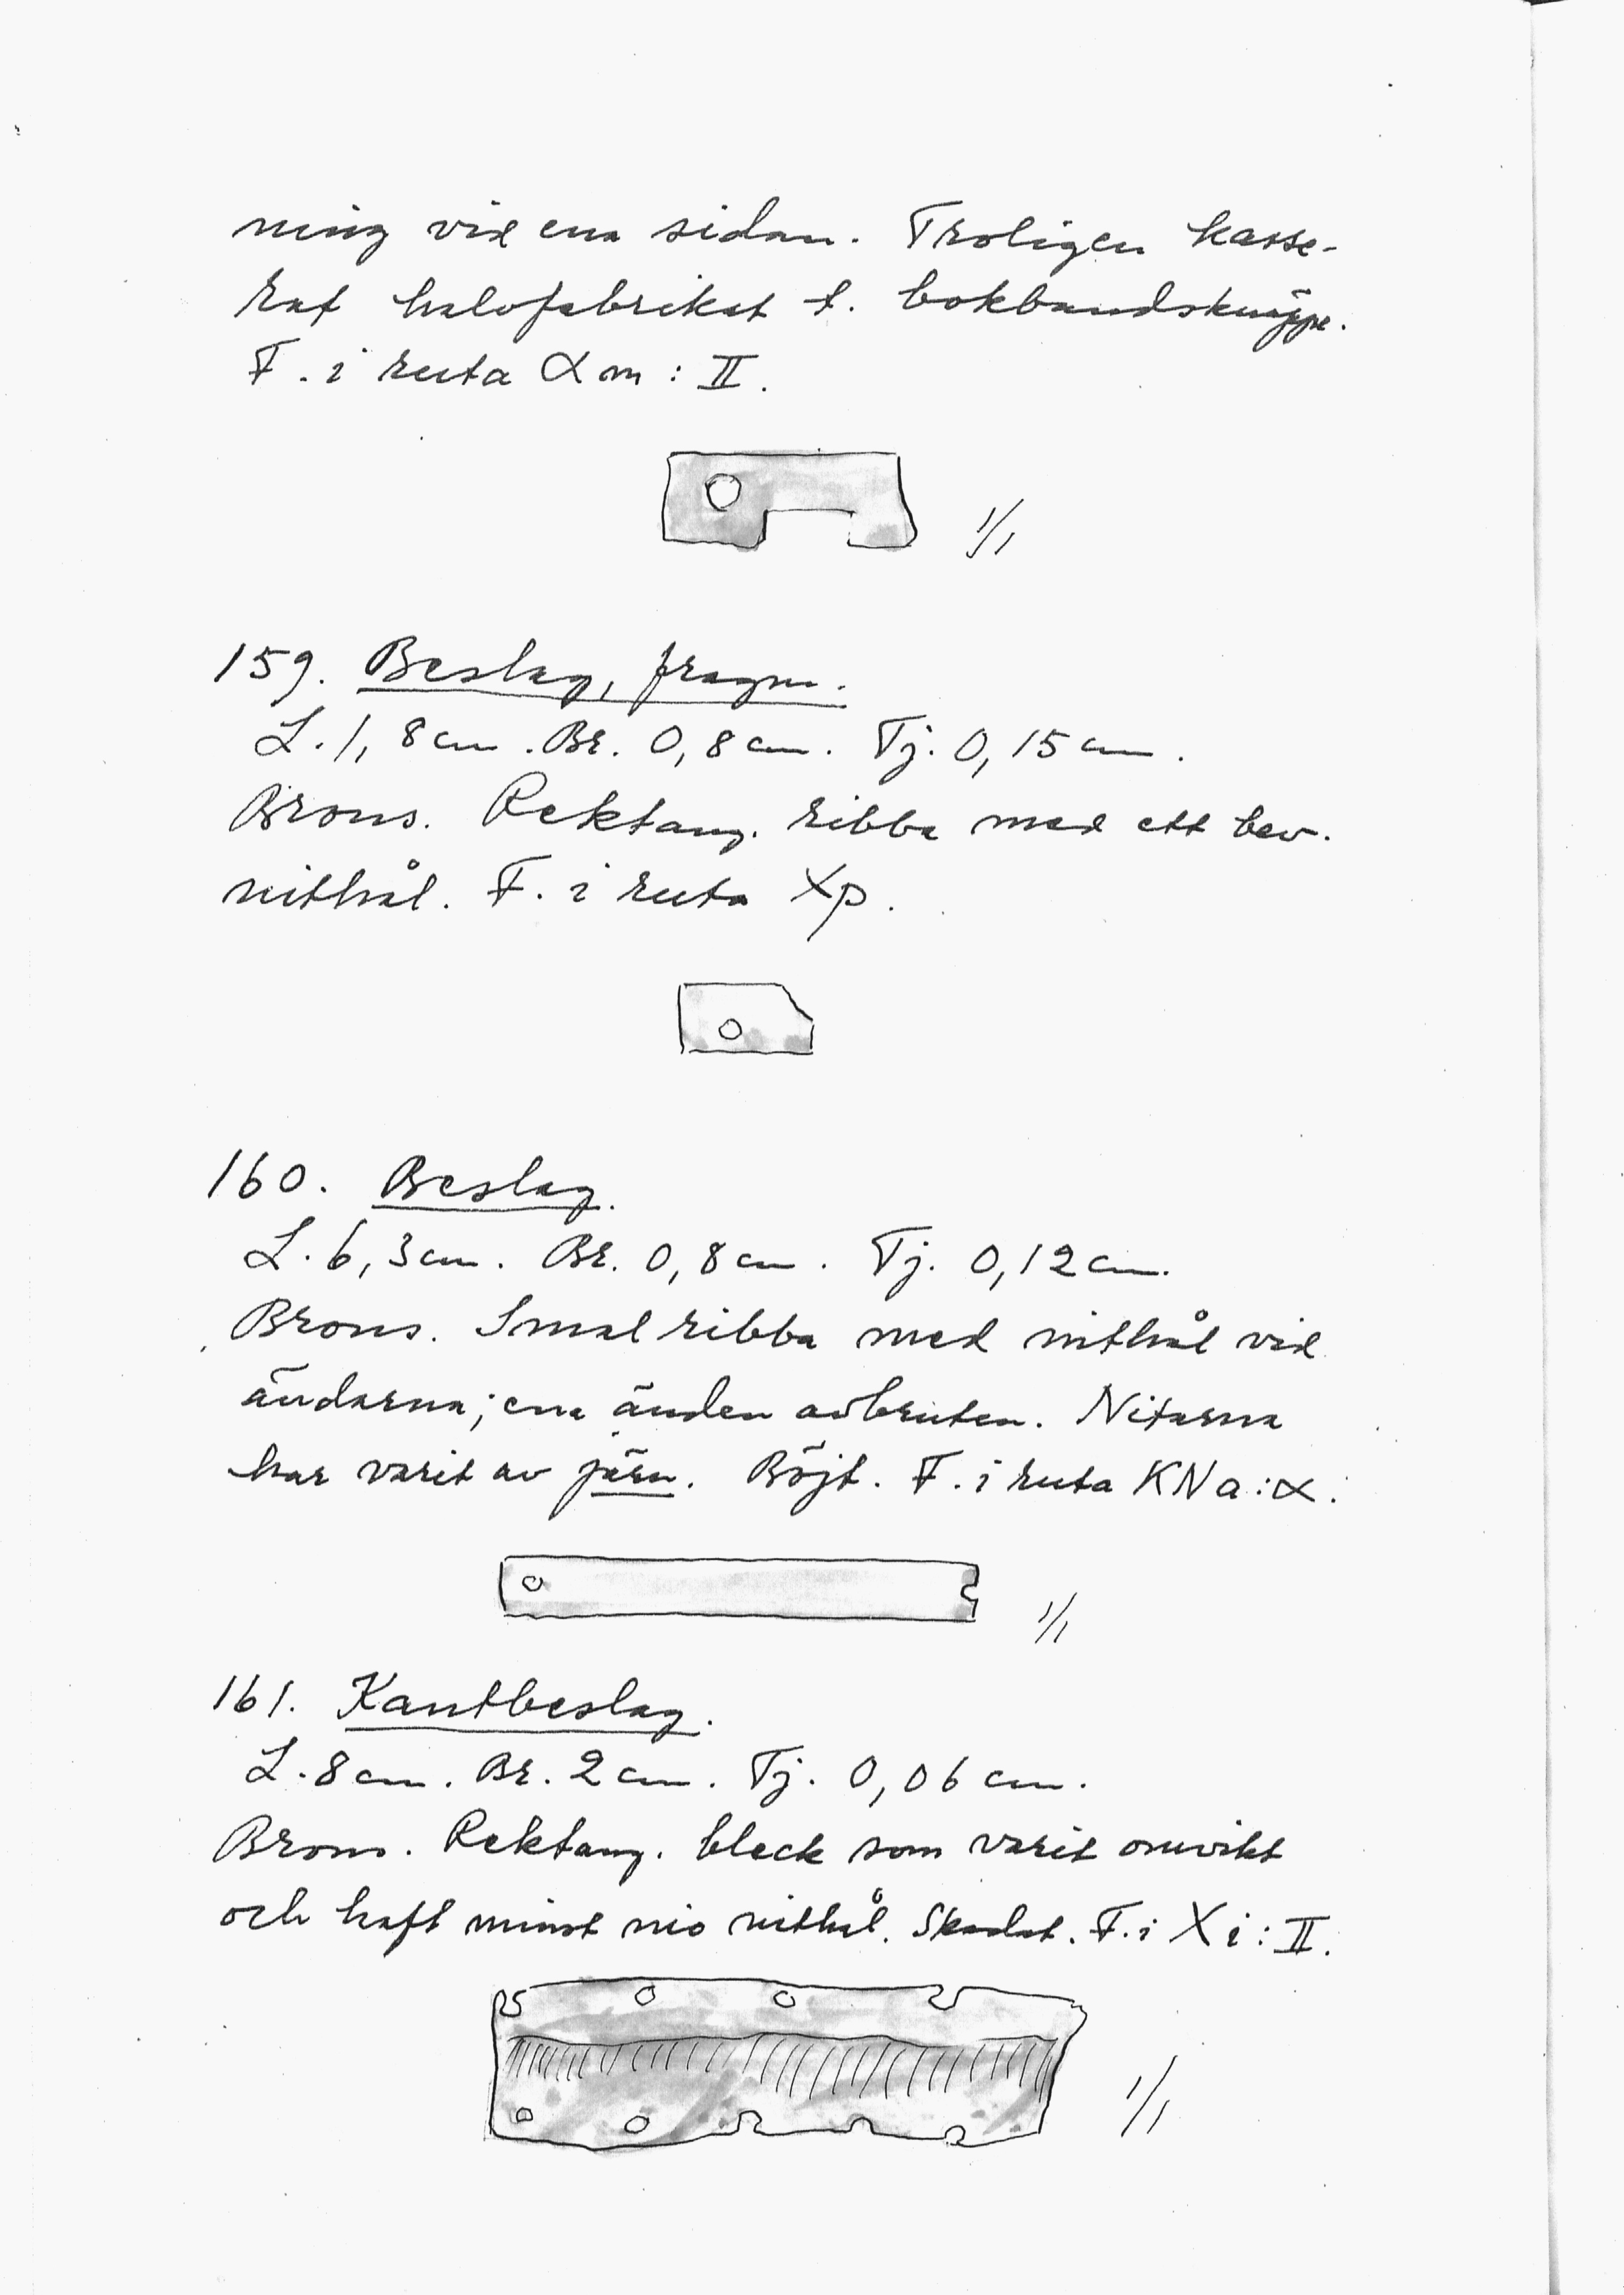 ning vid ena sidan. Troligen kasse-
rat halvfabrikat t. bokbandsknäppe.
F. i ruta αm : II.
1/1
159. Beslag, fragm.
L. 1,8 cm. Br. 0,8 cm. Tj. 0,15 cm.
Brons. Rektang. ribba med ett bev.
nithål. F. i ruta Xp.
160. Beslag.
L. 6,3 cm. Br. 0,8 cm. Tj. 0,12 cm.
Brons. Smal ribba med nithål vid
ändarna; ena änden avbruten. Nitarna
har varit av järn. Böjt. F. i ruta KNa:α.
1/1
161. Kantbeslag.
L. 8 cm. Br. 2 cm. Tj. 0,06 cm.
Brons. Rektang. bleck som varit omvikt
och haft minst nio nithål. Skadat. F. i Xi : II.
1/1